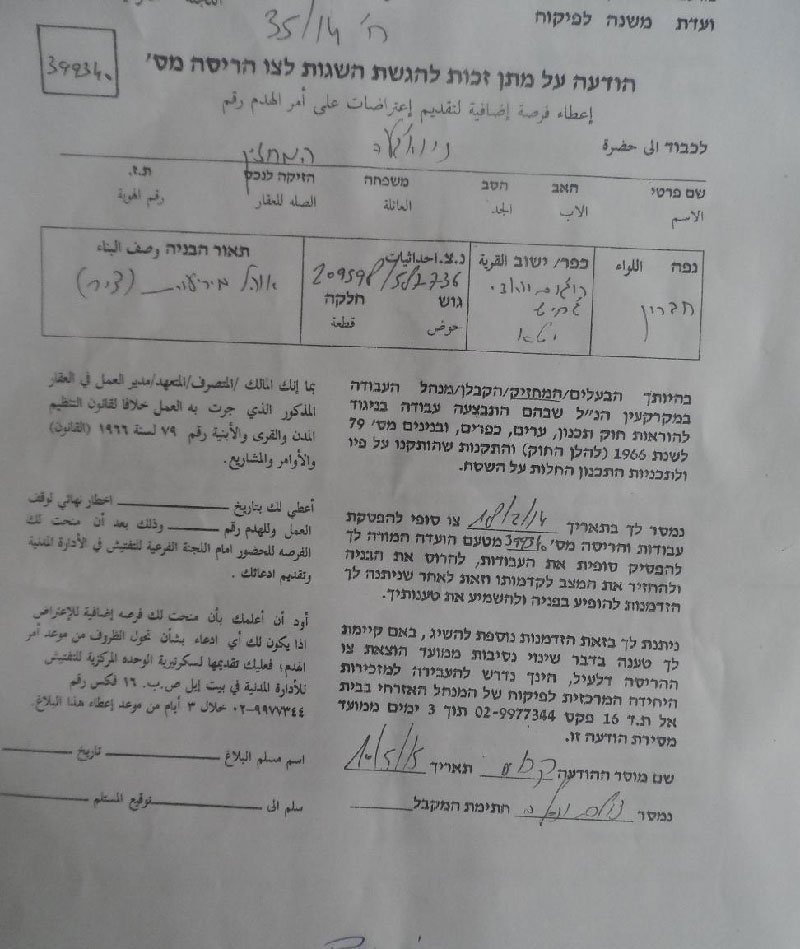 ועדת משנה לפיקוח
ח' 35/14
הודעה על מתן זכות להגשת השגות לצו הריסה מס'
إعطاء فرصة إضافية لتقديم إعتراضات على أمر الهدم رقم
לכבוד الى حضرة
המחזיק
שם פרטי האב הסב משפחה הזיקה לנכס ת.ז.
الاسم الاب الجد العائلة الصله للعقار رقم الهوية
נפה اللواء
כפר/ ישוב القرية
נ.צ. احداثيات
תאור הבניה وصف البناء
חברון
יטא
209598/582736
גוש חלקה
حوض قطعة
אוהל מיריעות (דיר)
בהיותך הבעלים/המחזיק/הקבלן/מנהל העבודה
במקרקעין הנ"ל שבהם התבצעה עבודה בניגוד
להוראות חוק תכנון, ערים, כפרים, ובנינים מס' 79
לשנת 1966 (להלן החוק) והתקנות שהותקנו על פיו
ולתכניות התכנון החלות על השטח.
נמסר לך בתאריך 18/2/14 צו סופי להפסקת
עבודות והריסה מס' מטעם הועדה המורה לך
להפסיק סופית את העבודות, להרוס את הבניה
ולהחזיר את המצב לקדמותו וזאת לאחר שניתנה לך
הזדמנות להופיע בפניה ולהשמיע את טענותיך.
ניתנת לך בזאת הזדמנות נוספת להשיג, באם קיימת
לך טענה בדבר שינוי נסיבות ממועד הוצאת צו
ההריסה דלעיל, הינך נדרש להעבירה למזכירות
היחידה המרכזית לפיקוח של המנהל האזרחי בבית
אל ת.ד 16 פקס 02-9977344 תוך 3 ימים ממועד
מסירת הודעה זו.
שם מוסר ההודעה תאריך 10/5/15
נמסר חתימת המקבל
بما إنك المالك /المتصرف/المتعهد/مدير العمل في العقار
المذكور الذي جرت به العمل خلافا لقانون التنظيم
المدن والقرى والأبنية رقم ٧٩ لسنة ١٩٦٦ (القانون)
والأوامر والمشاريع.
أعطي لك بتاريخ اخطار نهائي توقف
العمل وللهدم رقم وذلك بعد أن منحت لك
الفرصه للحضور امام اللجنة الفرعية للتفتيش في الأدارة المدنية
وتقديم ادعائك.
أود أن أعلمك بأن منحت لك فرصه إضافية للإعتراض
اذا يكون لك أي ادعاء بشأن تحول الظروف من موعد أمر
الهدم؛ فعليك تقديمها لسكرتيرية الوحده المركزية للتفتيش
للأدارة المدنية في بيت إيل ص.ب. ١٦ فكس رقم
٠٢-٩٩٧٧٣٤٤ خلال ٣ أيام من موعد إعطاء هذا البلاغ.
اسم مسلم البلاغ تاريخ
سلم الى توقيع المستلم